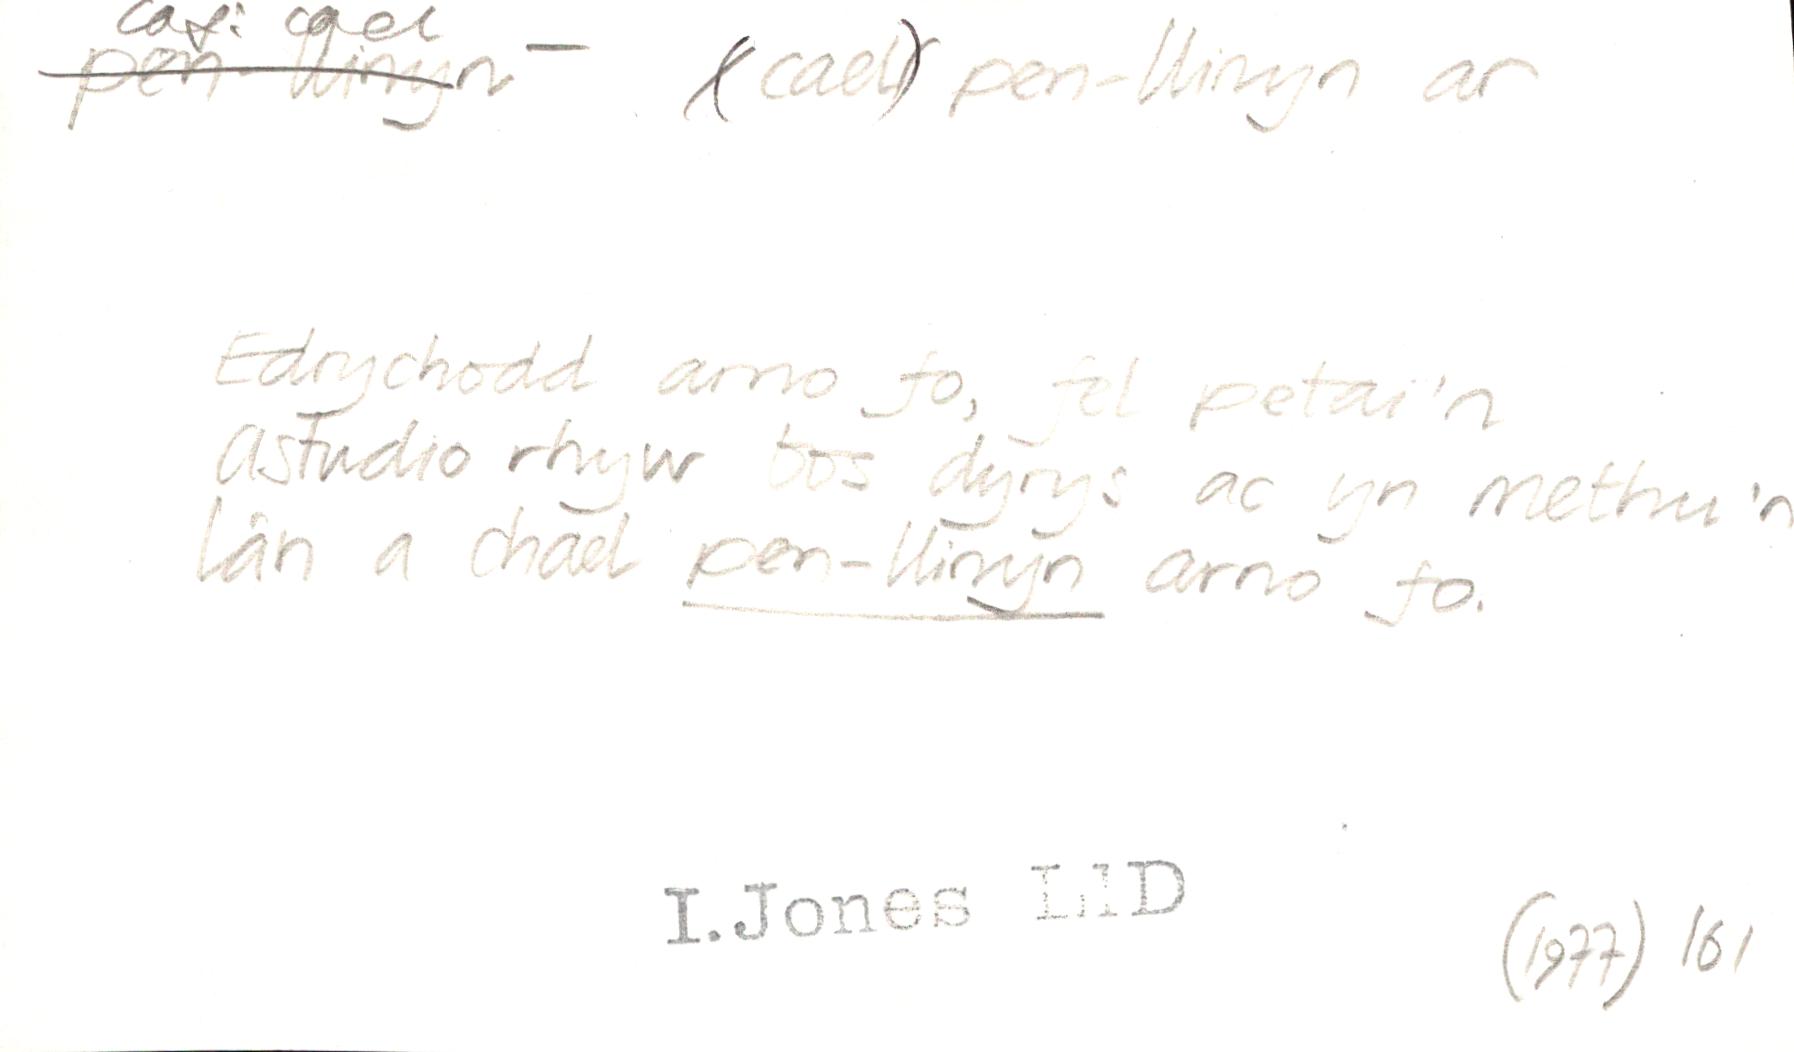 caf: cael
pen-llinyn — (cael) pen-llinyn ar
Edrychodd arno fo, fel petai'n
astudio rhyw bos dyrys ac yn methu'n
lân a chael pen-llinyn arno fo.
I.Jones LlD
(1977) 161